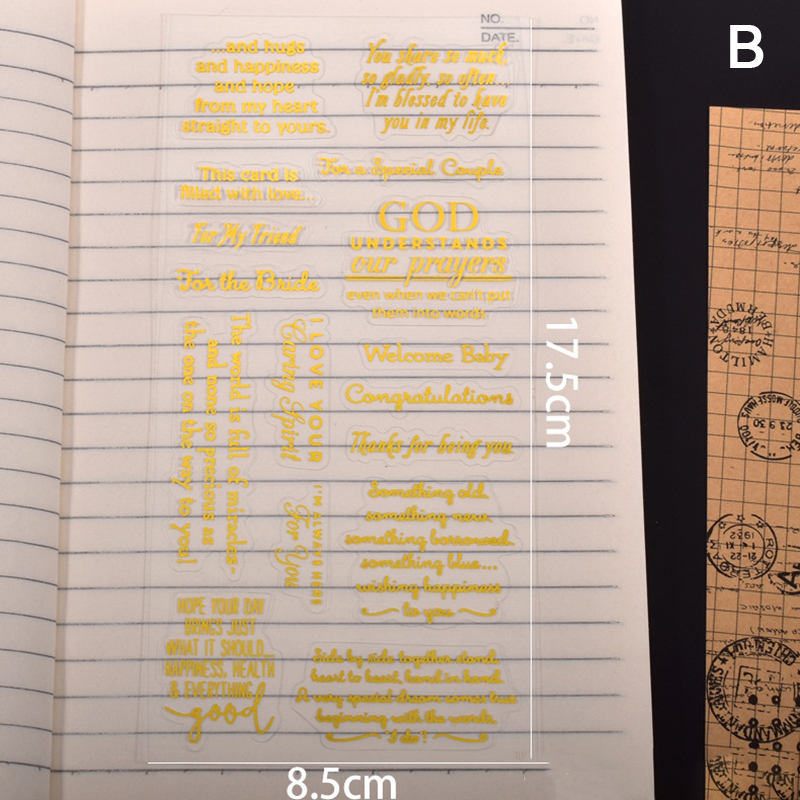 NO.
DATE.
B
...and hugs
and happiness
and hope
from my heart
straight to yours.
You share so much,
so gladly, so often...
I'm blessed to have
you in my life.
This card is
filled with love...
For a Special Couple
For My Friend
GOD
UNDERSTANDS
our prayers
even when we can't put
them into words
For the Bride
The world is full of miracles-
and none so precious as
the one on the way to you!
I LOVE YOUR
Caring Spirit
I'M ALWAYS HERE
For You
Welcome Baby
Congratulations
Thanks for being you.
Something old,
something new,
something borrowed,
something blue...
wishing happiness
to you
HOPE YOUR DAY
BRINGS JUST
WHAT IT SHOULD...
HAPPINESS, HEALTH
& EVERYTHING
good
Side by side together stand,
heart to heart, hand in hand.
A very special dream comes true
beginning with the words,
"I do"!
17.5cm
8.5cm
HAMILTON
BERMUDA
23 9 30
ROTTERDAM
21-22
1 XI
1932